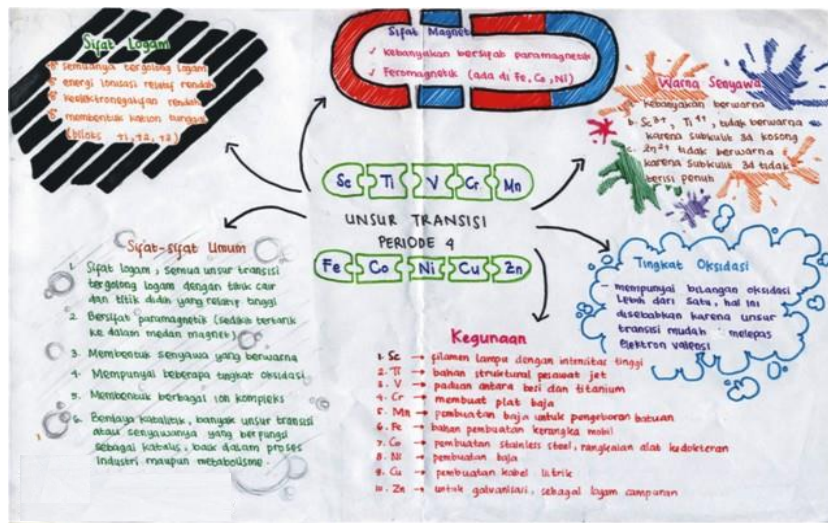 Sifat Logam
semuanya tergolong logam
energi ionisasi relatif rendah
keelektronegatifan rendah
membentuk kation tunggal
(biloks +1, +2, +3)
Sifat Magnet
✓ Kebanyakan bersifat paramagnetik
✓ Feromagnetik (ada di Fe, Co, Ni)
Warna Senyawa
a. Kebanyakan berwarna
b. Sc3+, Ti4+, tidak berwarna
karena subkulit 3d kosong
c. Zn2+ tidak berwarna
karena subkulit 3d tidak
terisi penuh
Sc Ti V Cr Mn
UNSUR TRANSISI
PERIODE 4
Fe Co Ni Cu Zn
Sifat-sifat Umum
1. Sifat logam, semua unsur transisi
tergolong logam dengan titik cair
dan titik didih yang relatif tinggi
2. Bersifat paramagnetik (sedikit tertarik
ke dalam medan magnet)
3. Membentuk senyawa yang berwarna
4. Mempunyai beberapa tingkat oksidasi
5. Membentuk berbagai ion kompleks
6. Berdaya katalitik, banyak unsur transisi
atau senyawanya yang berfungsi
sebagai katalis, baik dalam proses
industri maupun metabolisme.
Tingkat Oksidasi
- mempunyai bilangan oksidasi
Lebih dari satu, hal ini
disebabkan karena unsur
transisi mudah melepas
elektron valensi
Kegunaan
1. Sc → filamen lampu dengan intensitas tinggi
2. Ti → bahan struktural pesawat jet
3. V → paduan antara besi dan titanium
4. Cr → membuat plat baja
5. Mn → pembuatan baja untuk pengeboran batuan
6. Fe → bahan pembuatan kerangka mobil
7. Co → pembuatan stainless steel, rangkaian alat kedokteran
8. Ni → pembuatan baja
9. Cu → pembuatan kabel listrik
10. Zn → untuk galvanisasi, sebagai logam campuran